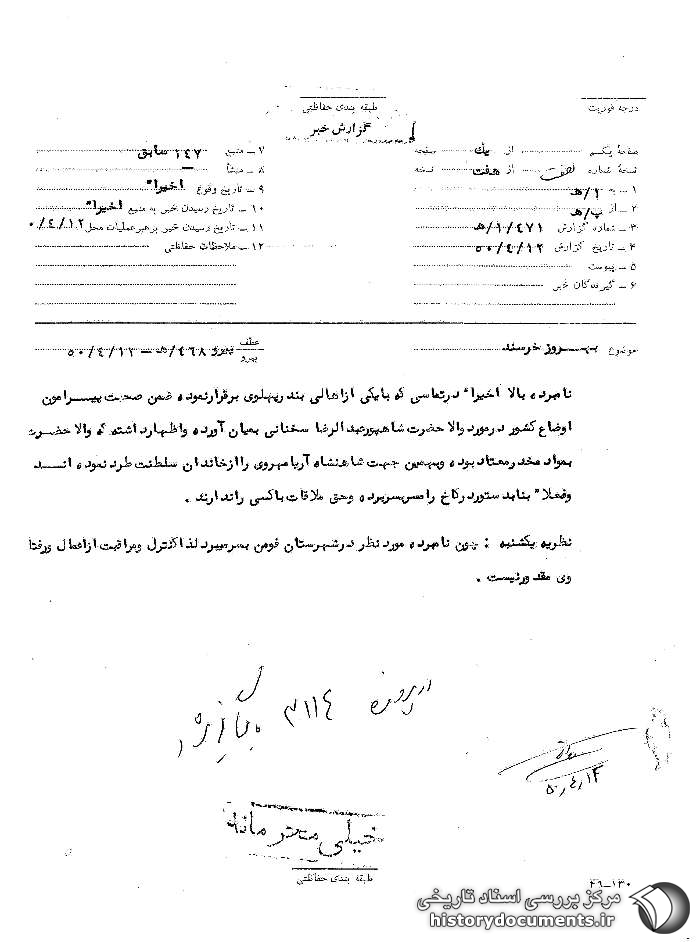 درجه فوریت
طبقه بندی حفاظتی
گزارش خبر
صفحهٔ یکم از یک صفحه
نسخهٔ شماره از هفت نسخه
۱ ـ به ۱/ه‍
۲ ـ از پ/ه‍
۳ ـ شماره گزارش ۱/۴۷۱/ه‍
۴ ـ تاریخ گزارش ۵۰/۴/۱۲
۵ ـ پیوست
۶ ـ گیرندگان خبر
۷ ـ منبع ۱۴۷ سابق
۸ ـ منشأ ـ
۹ ـ تاریخ وقوع اخیرا"
۱۰ ـ تاریخ رسیدن خبر به منبع اخیرا"
۱۱ ـ تاریخ رسیدن خبر برهبر عملیات محل ۰/۴/۱۲
۱۲ ـ ملاحظات حفاظتی
موضوع بهروز خرسند
عطف
پیرو پیرو ۴۶۸/ه‍ ـ ۵۰/۴/۱۲
نامبرده بالا اخیرا" درتماسی که بایکی ازاهالی بندرپهلوی برقرارنموده ضمن صحبت پیسرامون
اوضاع کشور درمورد والا حضرت شاهپورعبدالرضا سخنانی بمیان آورده واظهارداشته که والا حضرت
بمواد مخدرمعتاد بوده وبهمین جهت شاهنشاه آریامهروی راازخاندان سلطنت طرد نموده انسد
وفعلا" بنابدستوردرکاخ رامسربسربرده وحق ملاقات باکسی راندارند .
نظریه یکشنبه : چون نامبرده مورد نظر درشهرستان فومن بسرمیبرد لذاکنترل ومراقبت ازاعمال ورفتا
وی مقدورنیست .
درپرونده ۳۱۱۴
۵۰/۴/۱۳
خیلی محرمانه
طبقه بندی حفاظتی
۴۶-۱۳۰
مرکز بررسی اسناد تاریخی
historydocuments.ir